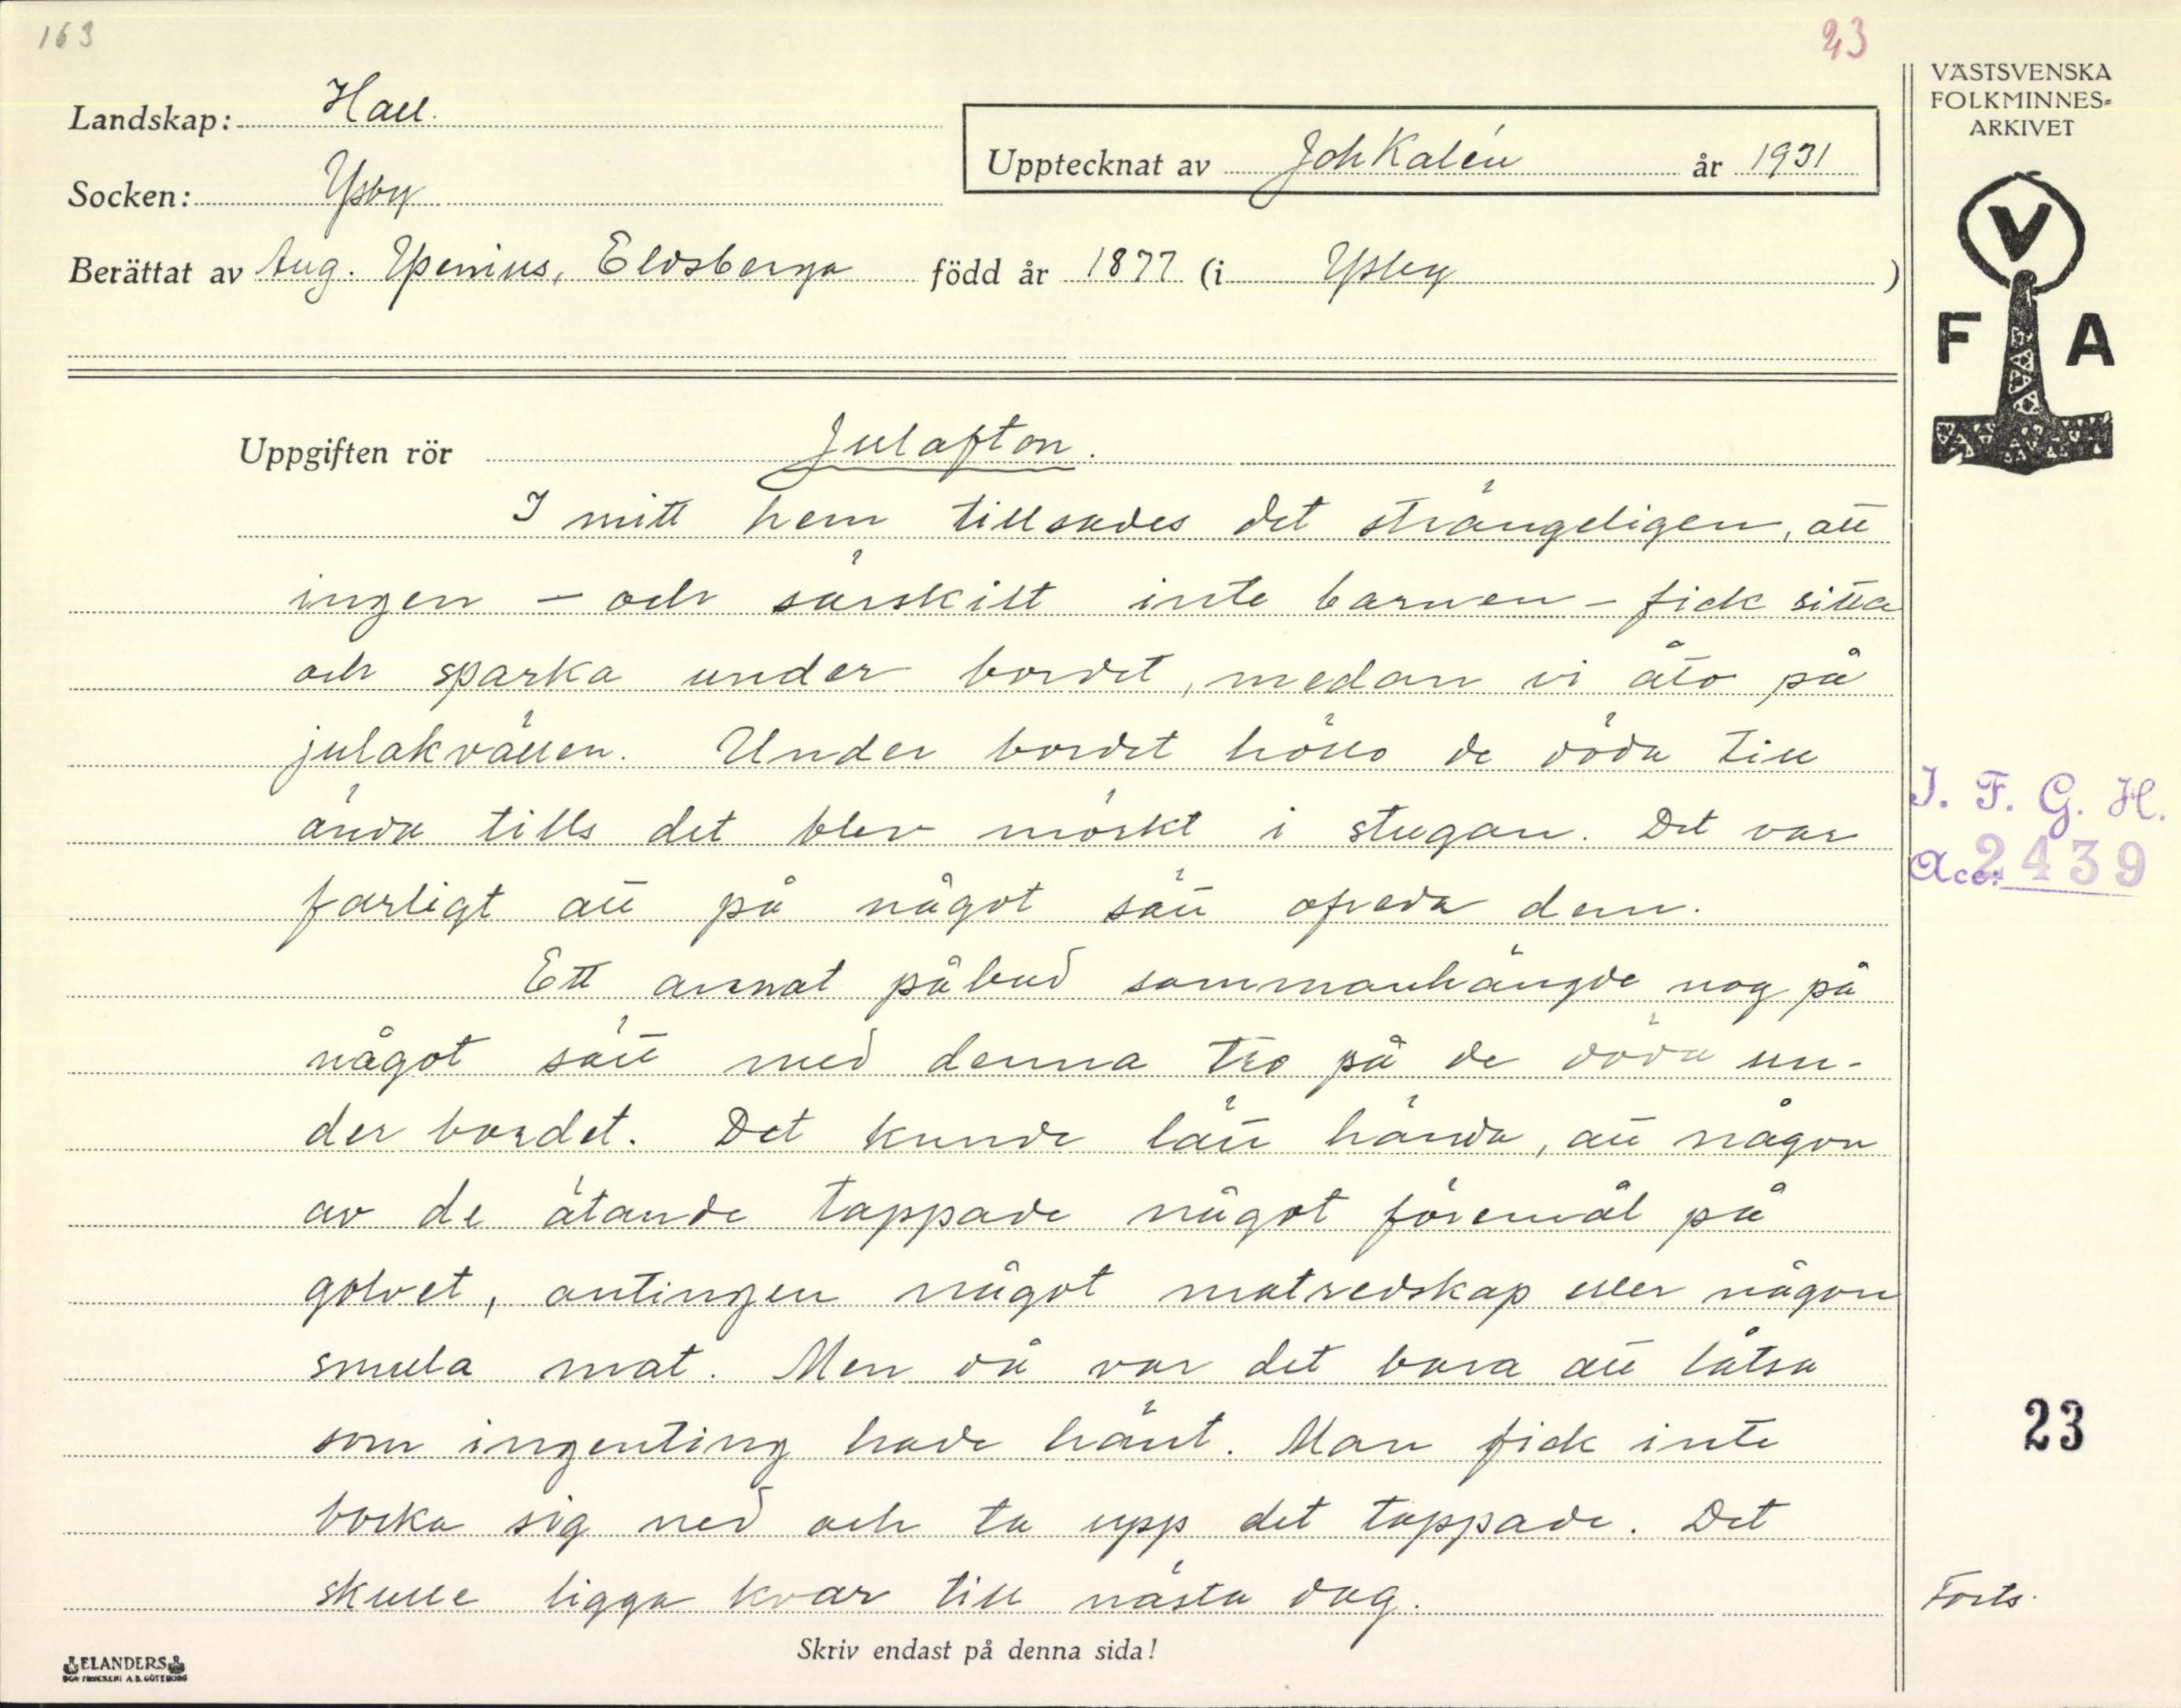 163
23
VÄSTSVENSKA
FOLKMINNES-
ARKIVET
V
F A
Landskap: Hall.
Upptecknat av Joh Kalén år 1931
Socken: Ysby
Berättat av Aug. Ypenius, Eldsberga född år 1877 (i Ysby )
Uppgiften rör Julafton.
I mitt hem tillsades det strängeligen, att
ingen – och särskilt inte barnen – fick sitta
och sparka under bordet, medan vi åto på
julakvällen. Under bordet höllo de döda till
ända tills det blev mörkt i stugan. Det var
farligt att på något sätt ofreda dem.
Ett annat påbud sammanhängde nog på
något sätt med denna tro på de döda un-
der bordet. Det kunde lätt hända, att någon
av de ätande tappade något föremål på
golvet, antingen något matredskap eller någon
smula mat. Men då var det bara att låtsa
som ingenting hade hänt. Man fick inte
bocka sig ned och ta upp det tappade. Det
skulle ligga kvar till nästa dag.
I. F. G. H.
Acc: 2439
23
Forts.
Skriv endast på denna sida!
ELANDERS
BOKTRYCKERI A.B. GÖTEBORG